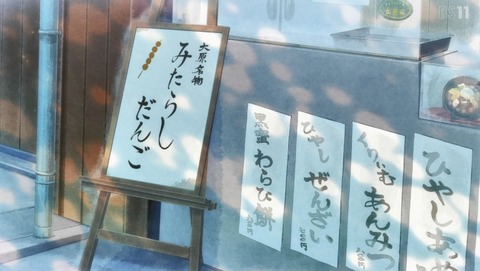 大原名物
みたらし
だんご
ひやしあめ
くりぃむあんみつ
ひやしぜんざい
黒蜜わらび餅
BS11